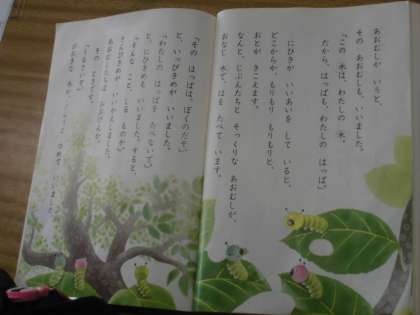 あおむしが いうと、
その あおむしも、いいました。
「この 木は、わたしの 木。
だから、はっぱも、わたしの はっぱ。」
にひきが いいあいを して いると、
どこからか、もりもり もりもりと、
おとが きこえます。
なんと、じぶんたちと そっくりな あおむしが、
おなじ 木で、はを たべて います。
「その はっぱは、ぼくのだぞ。」
と、いっぴきめが いいました。
「わたしの はっぱを たべないで。」
と、にひきめも いいました。すると、
「そんな こと、しる ものか。」
さんびきめが、いいかえしました。
あおむしたちは おおげんか。
その ときです。
「うるさいぞ。」
おおきな 木が、
ゆめて いいました。